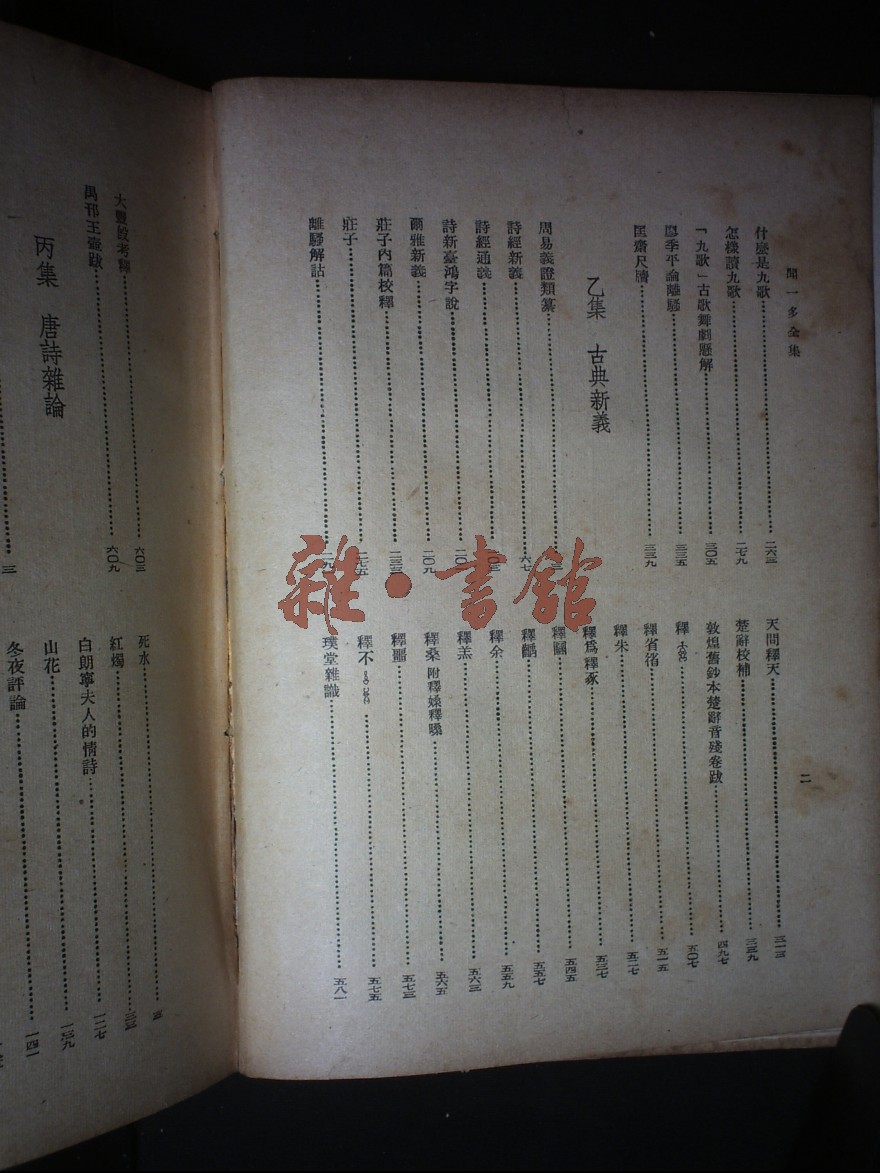 聞一多全集
什麽是九歌……二六三
怎樣讀九歌……二七九
「九歌」古歌舞劇懸解……三〇五
廖季平論離騷……三三五
匡齋尺牘……三三九
乙集 古典新義
周易義證類纂……三
詩經新義……六七
詩經通義
詩新臺鴻字說……二〇
爾雅新義……二〇九
莊子內篇校釋……二三三
莊子……二七五
離騷解詁
二
天問釋天……三一三
楚辭校補……三三九
敦煌舊鈔本楚辭音殘卷跋……四九七
釋……五〇七
釋省㣥……五一五
釋朱……五二七
釋爲釋豖……五三七
釋……五四五
釋齲……五五七
釋余……五五九
釋羔……五六三
釋桑 附釋㛐釋嗓……五六五
釋噩……五七三
釋不……五七五
璞堂雜識……五八一
大豐𣪘考釋……六〇三
禺邗王壺跋……六〇九
丙集 唐詩雜論
三
死水
紅燭……三三
白朗寧夫人的情詩……一二七
山花……一三九
冬夜評論……一四一
雜·書館